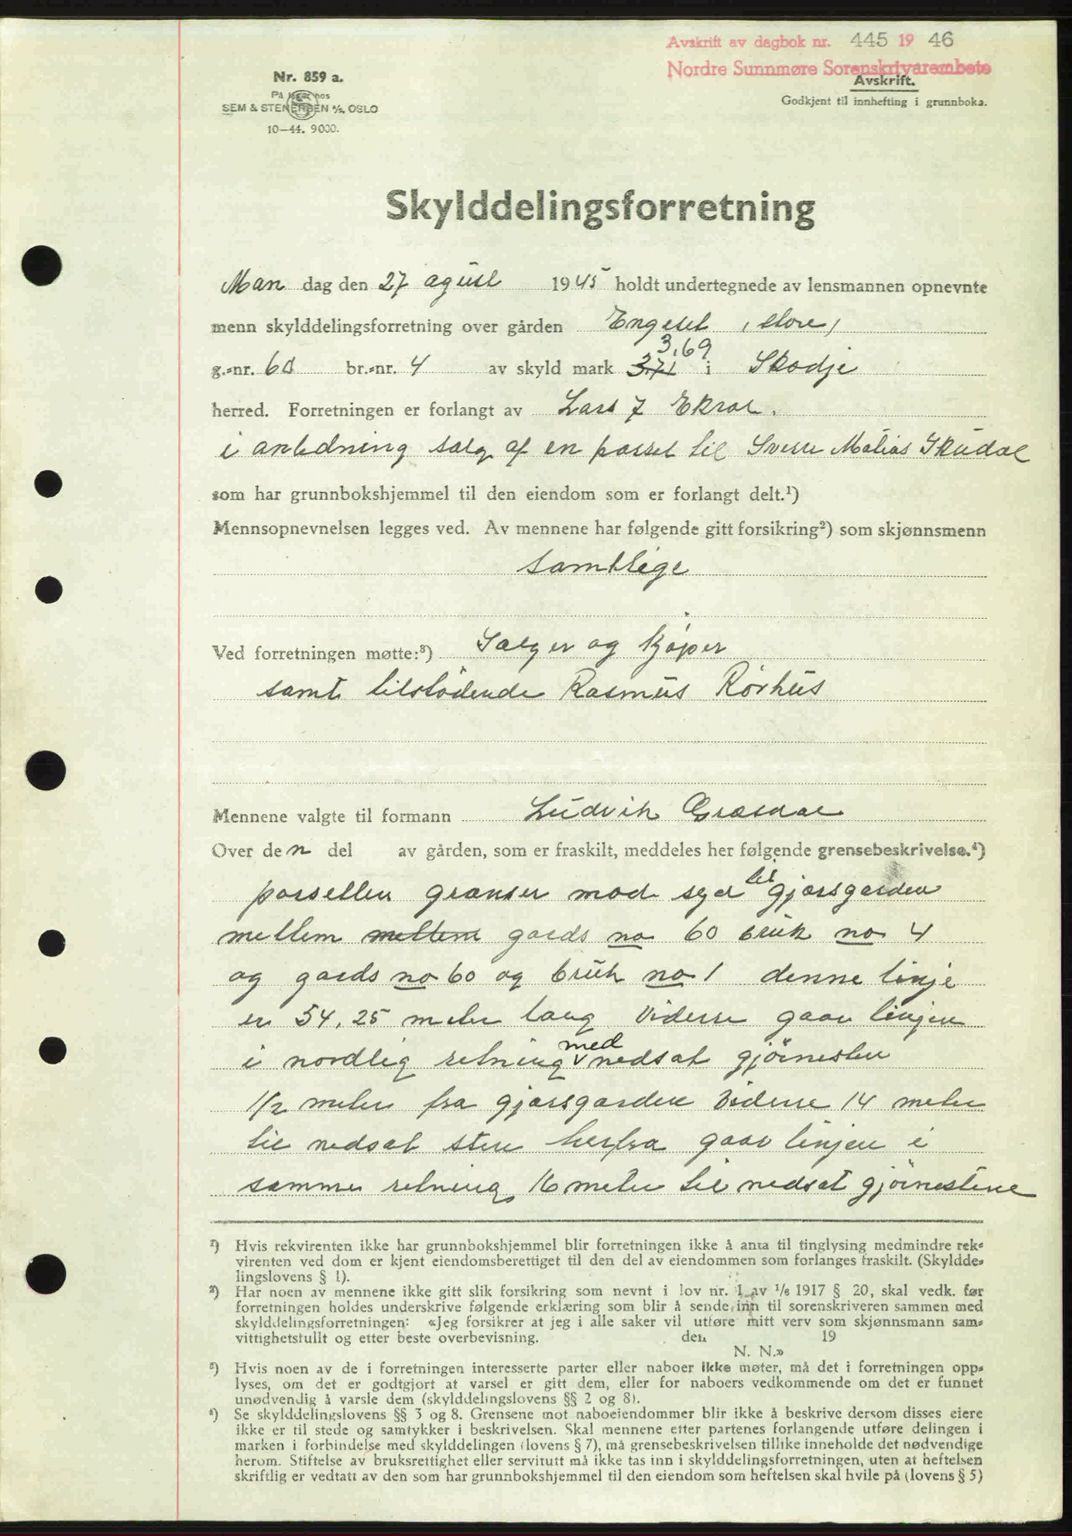 Avskrift av dagbok nr. 445 19 46
Nordre Sunnmøre Sorenskrivarembete
Nr. 859 a.
På lager hos
SEM & STENERSEN A/S, OSLO
10-44. 9000.
Avskrift.
Godkjent til innhefting i grunnboka.
Skylddelingsforretning
Man dag den 27 agust 1945 holdt undertegnede av lensmannen opnevnte
menn skylddelingsforretning over gården Engeset, store,
3,69
g.-nr. 60 br.-nr. 4 av skyld mark 3.71 i Skodje
herred. Forretningen er forlangt av Lars J Ekrol.
i anledning salg af en parsel til Sverre Matias Skudal
som har grunnbokshjemmel til den eiendom som er forlangt delt.¹)
Mennsopnevnelsen legges ved. Av mennene har følgende gitt forsikring²) som skjønnsmenn
samtlige
Ved forretningen møtte:³) Selger og kjøper
samt tilstødende Rasmus Rørhus
Mennene valgte til formann Ludvik Græsdal
Over den del av gården, som er fraskilt, meddeles her følgende grensebeskrivelse.⁴)
parsellen grænser mod syd til gjærsgarden
mellem mellem gards no 60 bruk no 4
og gards no 60 og bruk no 1 denne linje
er 54,25 meter lang Viderre gaar linjen
i nordlig retning med nedsat gjörnesten
1 1/2 meter fra gjærsgarden Viderre 14 meter
til nedsat sten herfra gaar linjen i
samme retning 16 meter til nedsat gjörnestene
¹) Hvis rekvirenten ikke har grunnbokshjemmel blir forretningen ikke å anta til tinglysing medmindre rek-
virenten ved dom er kjent eiendomsberettiget til den del av eiendommen som forlanges fraskilt. (Skyldde-
lingslovens § 1).
²) Har noen av mennene ikke gitt slik forsikring som nevnt i lov nr. 1 av 1/6 1917 § 20, skal vedk. før
forretningen holdes underskrive følgende erklæring som blir å sende inn til sorenskriveren sammen med
skylddelingsforretningen: «Jeg forsikrer at jeg i alle saker vil utføre mitt verv som skjønnsmann sam-
vittighetsfullt og etter beste overbevisning. den 19
N. N.»
³) Hvis noen av de i forretningen interesserte parter eller naboer ikke møter, må det i forretningen opp-
lyses, om det er godtgjort at varsel er gitt dem, eller for naboers vedkommende om det er funnet
unødvendig å varsle dem (skylddelingslovens §§ 2 og 8).
⁴) Se skylddelingslovens §§ 3 og 8. Grensene mot naboeiendommer blir ikke å beskrive dersom disses eiere
ikke er til stede og samtykker i beskrivelsen. Skal mennene etter partenes forlangende utføre delingen i
marken i forbindelse med skylddelingen (lovens § 7), må grensebeskrivelsen tillike inneholde det nødvendige
herom. Stiftelse av bruksrettighet eller servitutt må ikke tas inn i skylddelingsforretningen, uten at heftelsen
skriftlig er vedtatt av den som har grunnbokshjemmel til den eiendom som heftelsen skal hvile på (lovens § 5)